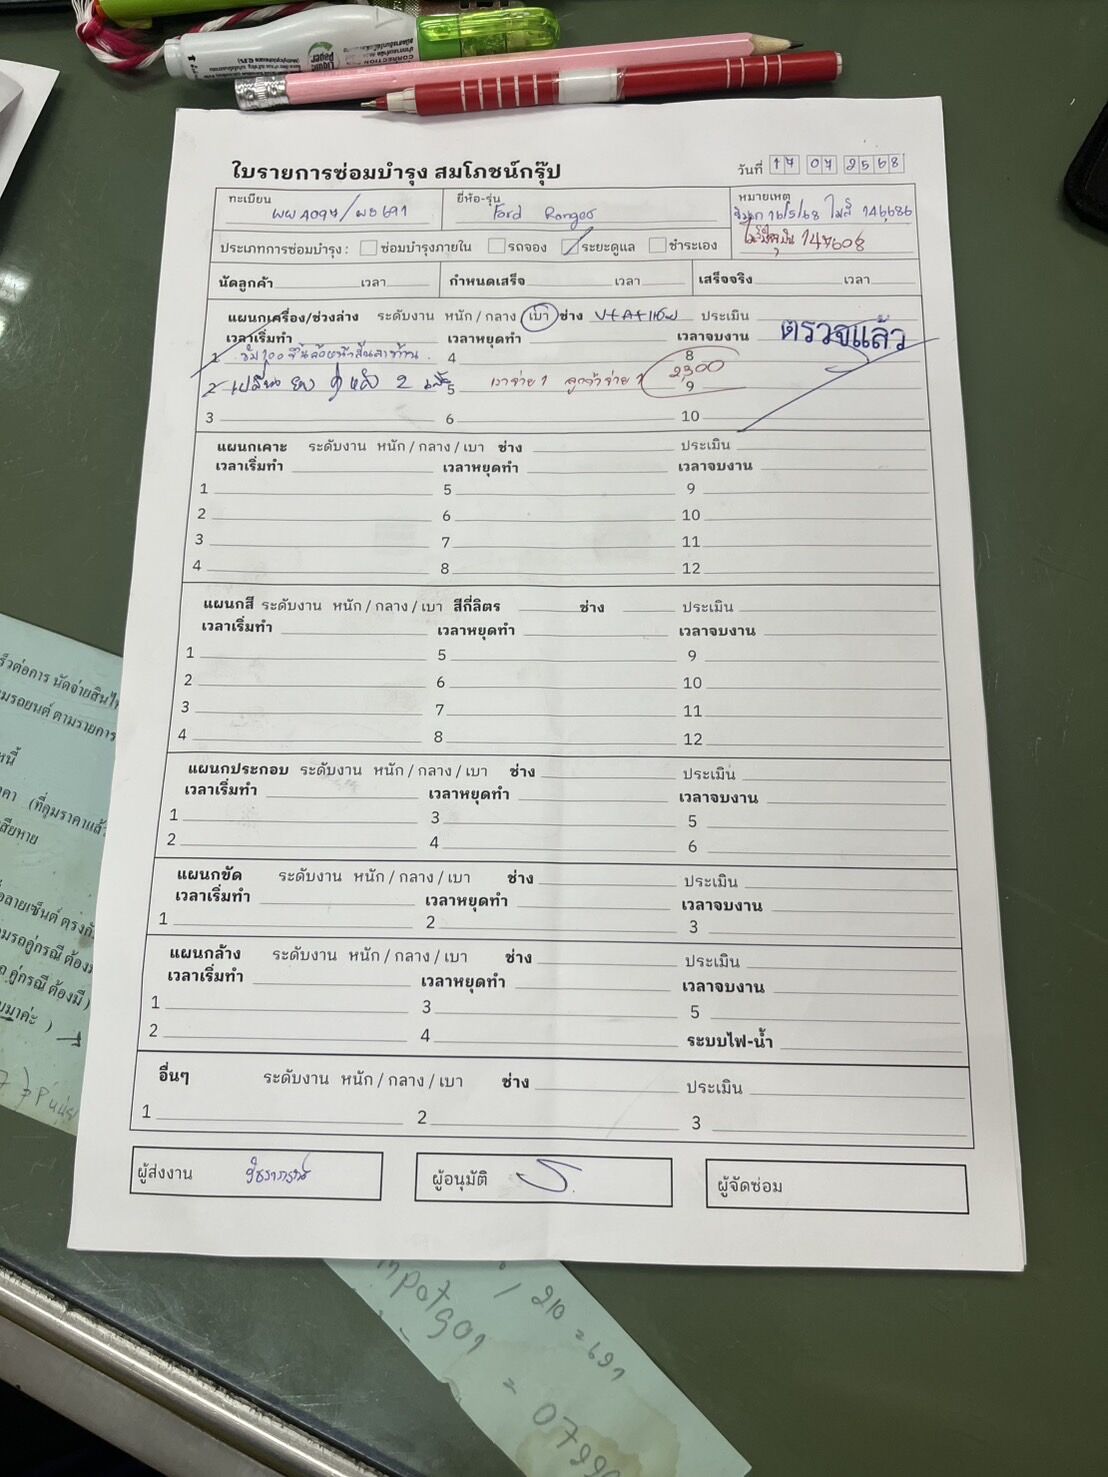 ใบรายการซ่อมบำรุง สมโภชน์กรุ๊ป
วันที่ 17 07 2568
ทะเบียน
ยี่ห้อ-รุ่น Ford Ranger
หมายเหตุ
16/5/68 ไมล์ 146686
147608
ประเภทการซ่อมบำรุง : ซ่อมบำรุงภายใน รถจอง ระยะดูแล ชำระเอง
นัดลูกค้า เวลา กำหนดเสร็จ เวลา เสร็จจริง เวลา
แผนกเครื่อง/ช่วงล่าง ระดับงาน หนัก / กลาง / เบา ช่าง ประเมิน
ตรวจแล้ว
เวลาเริ่มทำ เวลาหยุดทำ เวลาจบงาน
1 4 8
2 เปลี่ยน ยาง คู่ หลัง 2 เส้น 5 เราจ่าย 1 ลูกค้าจ่าย 1 2,300 9
3 6 10
แผนกเคาะ ระดับงาน หนัก / กลาง / เบา ช่าง ประเมิน
เวลาเริ่มทำ เวลาหยุดทำ เวลาจบงาน
1 5 9
2 6 10
3 7 11
4 8 12
แผนกสี ระดับงาน หนัก / กลาง / เบา สีกี่ลิตร ช่าง ประเมิน
เวลาเริ่มทำ เวลาหยุดทำ เวลาจบงาน
1 5 9
2 6 10
3 7 11
4 8 12
แผนกประกอบ ระดับงาน หนัก / กลาง / เบา ช่าง ประเมิน
เวลาเริ่มทำ เวลาหยุดทำ เวลาจบงาน
1 3 5
2 4 6
แผนกขัด ระดับงาน หนัก / กลาง / เบา ช่าง ประเมิน
เวลาเริ่มทำ เวลาหยุดทำ เวลาจบงาน
1 2 3
แผนกล้าง ระดับงาน หนัก / กลาง / เบา ช่าง ประเมิน
เวลาเริ่มทำ เวลาหยุดทำ เวลาจบงาน
1 3 5
2 4 ระบบไฟ-น้ำ
อื่นๆ ระดับงาน หนัก / กลาง / เบา ช่าง ประเมิน
1 2 3
ผู้ส่งงาน ผู้อนุมัติ ผู้จัดซ่อม